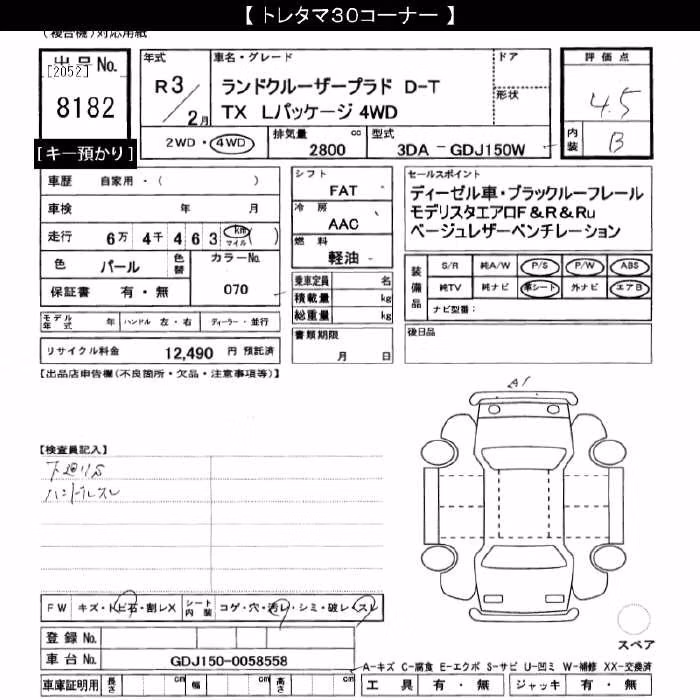 【 トレタマ30コーナー 】
(複合機)対応用紙
出品No.
[2052]
8182
[キー預かり]
年式
R 3/2月
車名・グレード
ランドクルーザープラド D-T
TX Lパッケージ 4WD
ドア
形状
評価点
4.5
内装
B
2WD・4WD
排気量
2800 cc
型式
3DA - GDJ150W
車歴 自家用・( )
車検 年 月
走行 6万 4千 4 6 3 km マイル ( )
色 パール 色替 カラーNo.
保証書 有・無 070
モデル年式 年 ハンドル 左・右 ディーラー・並行
リサイクル料金 12,490 円 預託済
シフト
FAT
冷房
AAC
燃料
軽油
乗車定員 名
積載量 kg
総重量 kg
書類期限
月 日
セールスポイント
ディーゼル車・ブラックルーフレール
モデリスタエアロF&R&Ru
ベージュレザーベンチレーション
装備品
S/R 純A/W P/S P/W ABS
純TV 純ナビ 革シート 外ナビ エアB
ナビ型番:
後日品
【出品店申告欄(不良箇所・欠品・注意事項等)】
A1
【検査員記入】
下廻りS
ハンドルスレ
FW キズ・トビ石・割レX シート内装 コゲ・穴・汚レ・シミ・破レ・スレ
登録No.
車台No. GDJ150-0058558
車庫証明用 長さ cm 幅 cm 高さ cm
スペア
A-キズ C-腐食 E-エクボ S-サビ U-凹ミ W-補修 XX-交換済
工具 有・無 ジャッキ 有・無